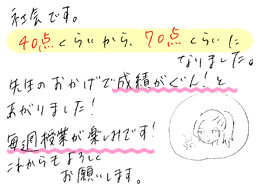 社会です。
40点くらいから、70点くらいに
なりました。
先生のおかげで成績がぐん!と
あがりました!
毎週授業が楽しみです!
これからもよろしく
お願いします。